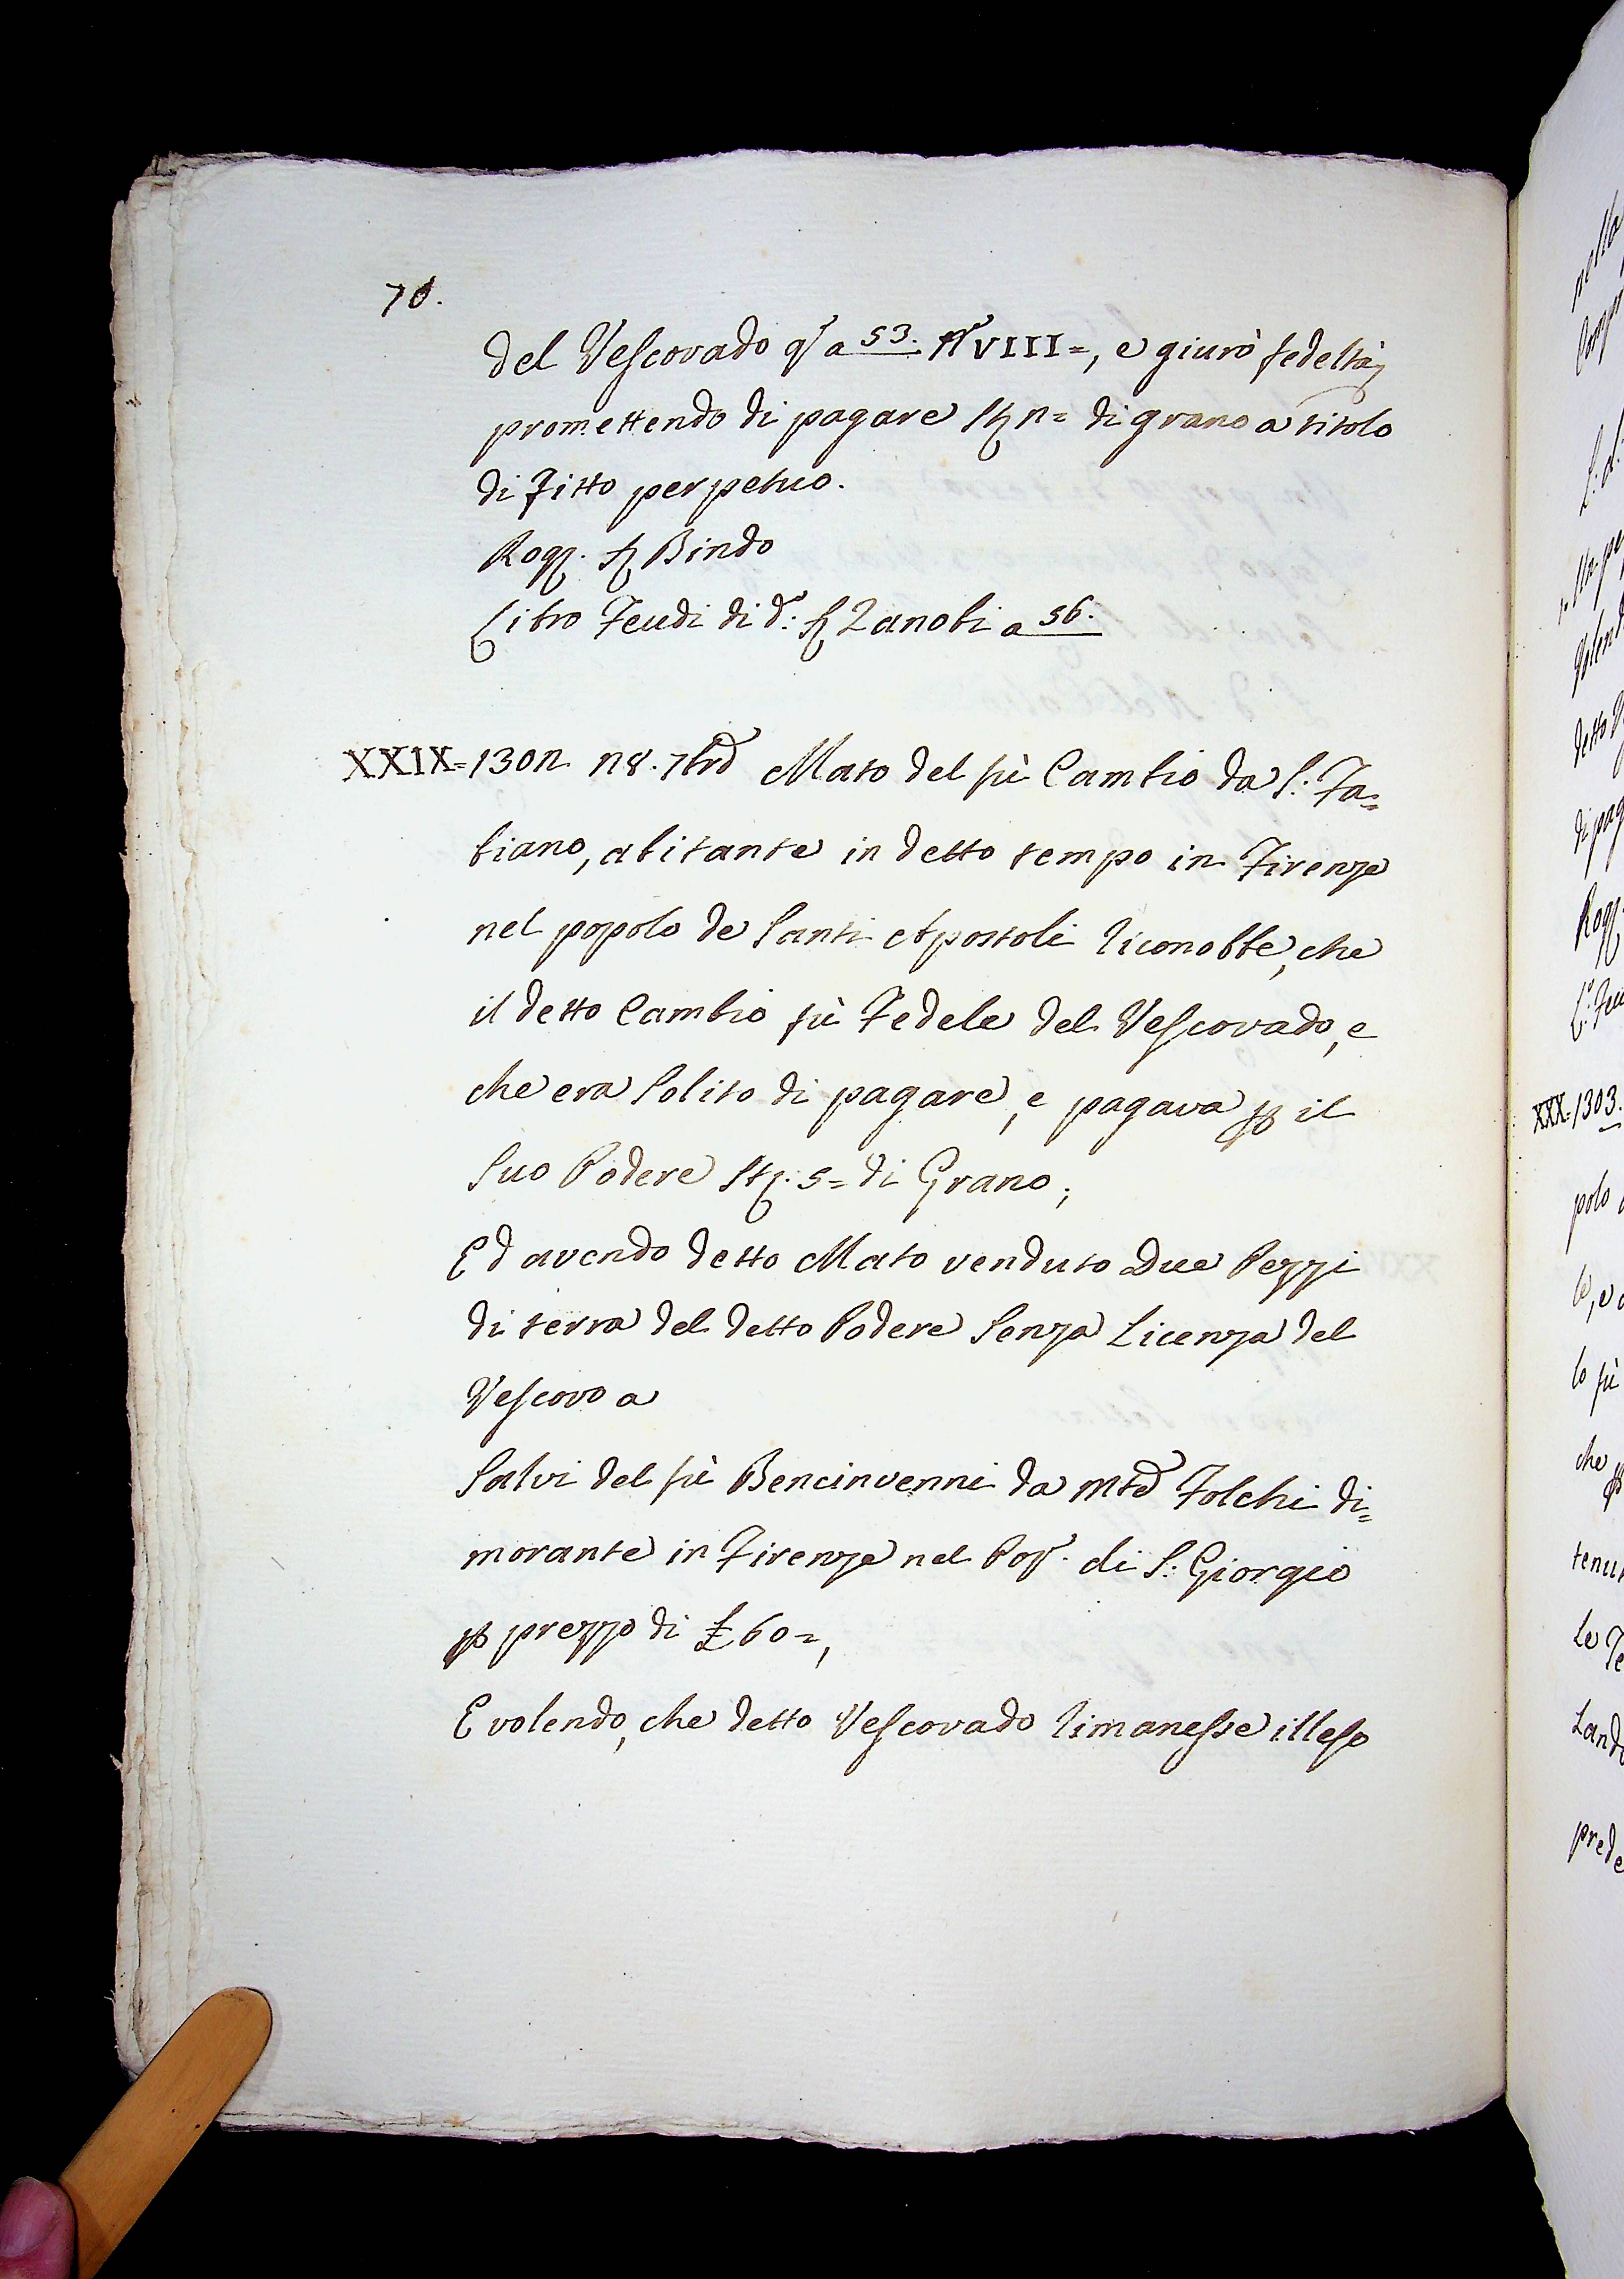 70.
del Vescovado q.ͬ a 53. n.º VIII=, e giurò fedeltà,
promettendo di pagare st. n= di grano a titolo
di Fitto perpetuo.
Rog. S. Bindo
Libro Feudi di d.º: S. Zanobi a 56.
XXIX= 130n n8. 7brẽ Mato del fù Cambio da S: Fa=
biano, abitante in detto tempo in Firenze
nel popolo de Santi Apostoli riconobbe, che
il detto Cambio fù Fedele del Vescovado, e
che era Solito di pagare, e pagava p il
Suo Podere st. 5= di Grano;
Ed avendo detto Mato venduto Due Pezzi
di terra del detto Podere Senza Licenza del
Vescovo a
Salvi del fù Bencinvenni da mtẽ Folchi di=
morante in Firenze nel Pop. di S: Giorgio
p prezzo di £ 60=,
E volendo, che detto Vescovado rimanesse illeso
XXX= 1303.
polo
lo fù
che
Rog.